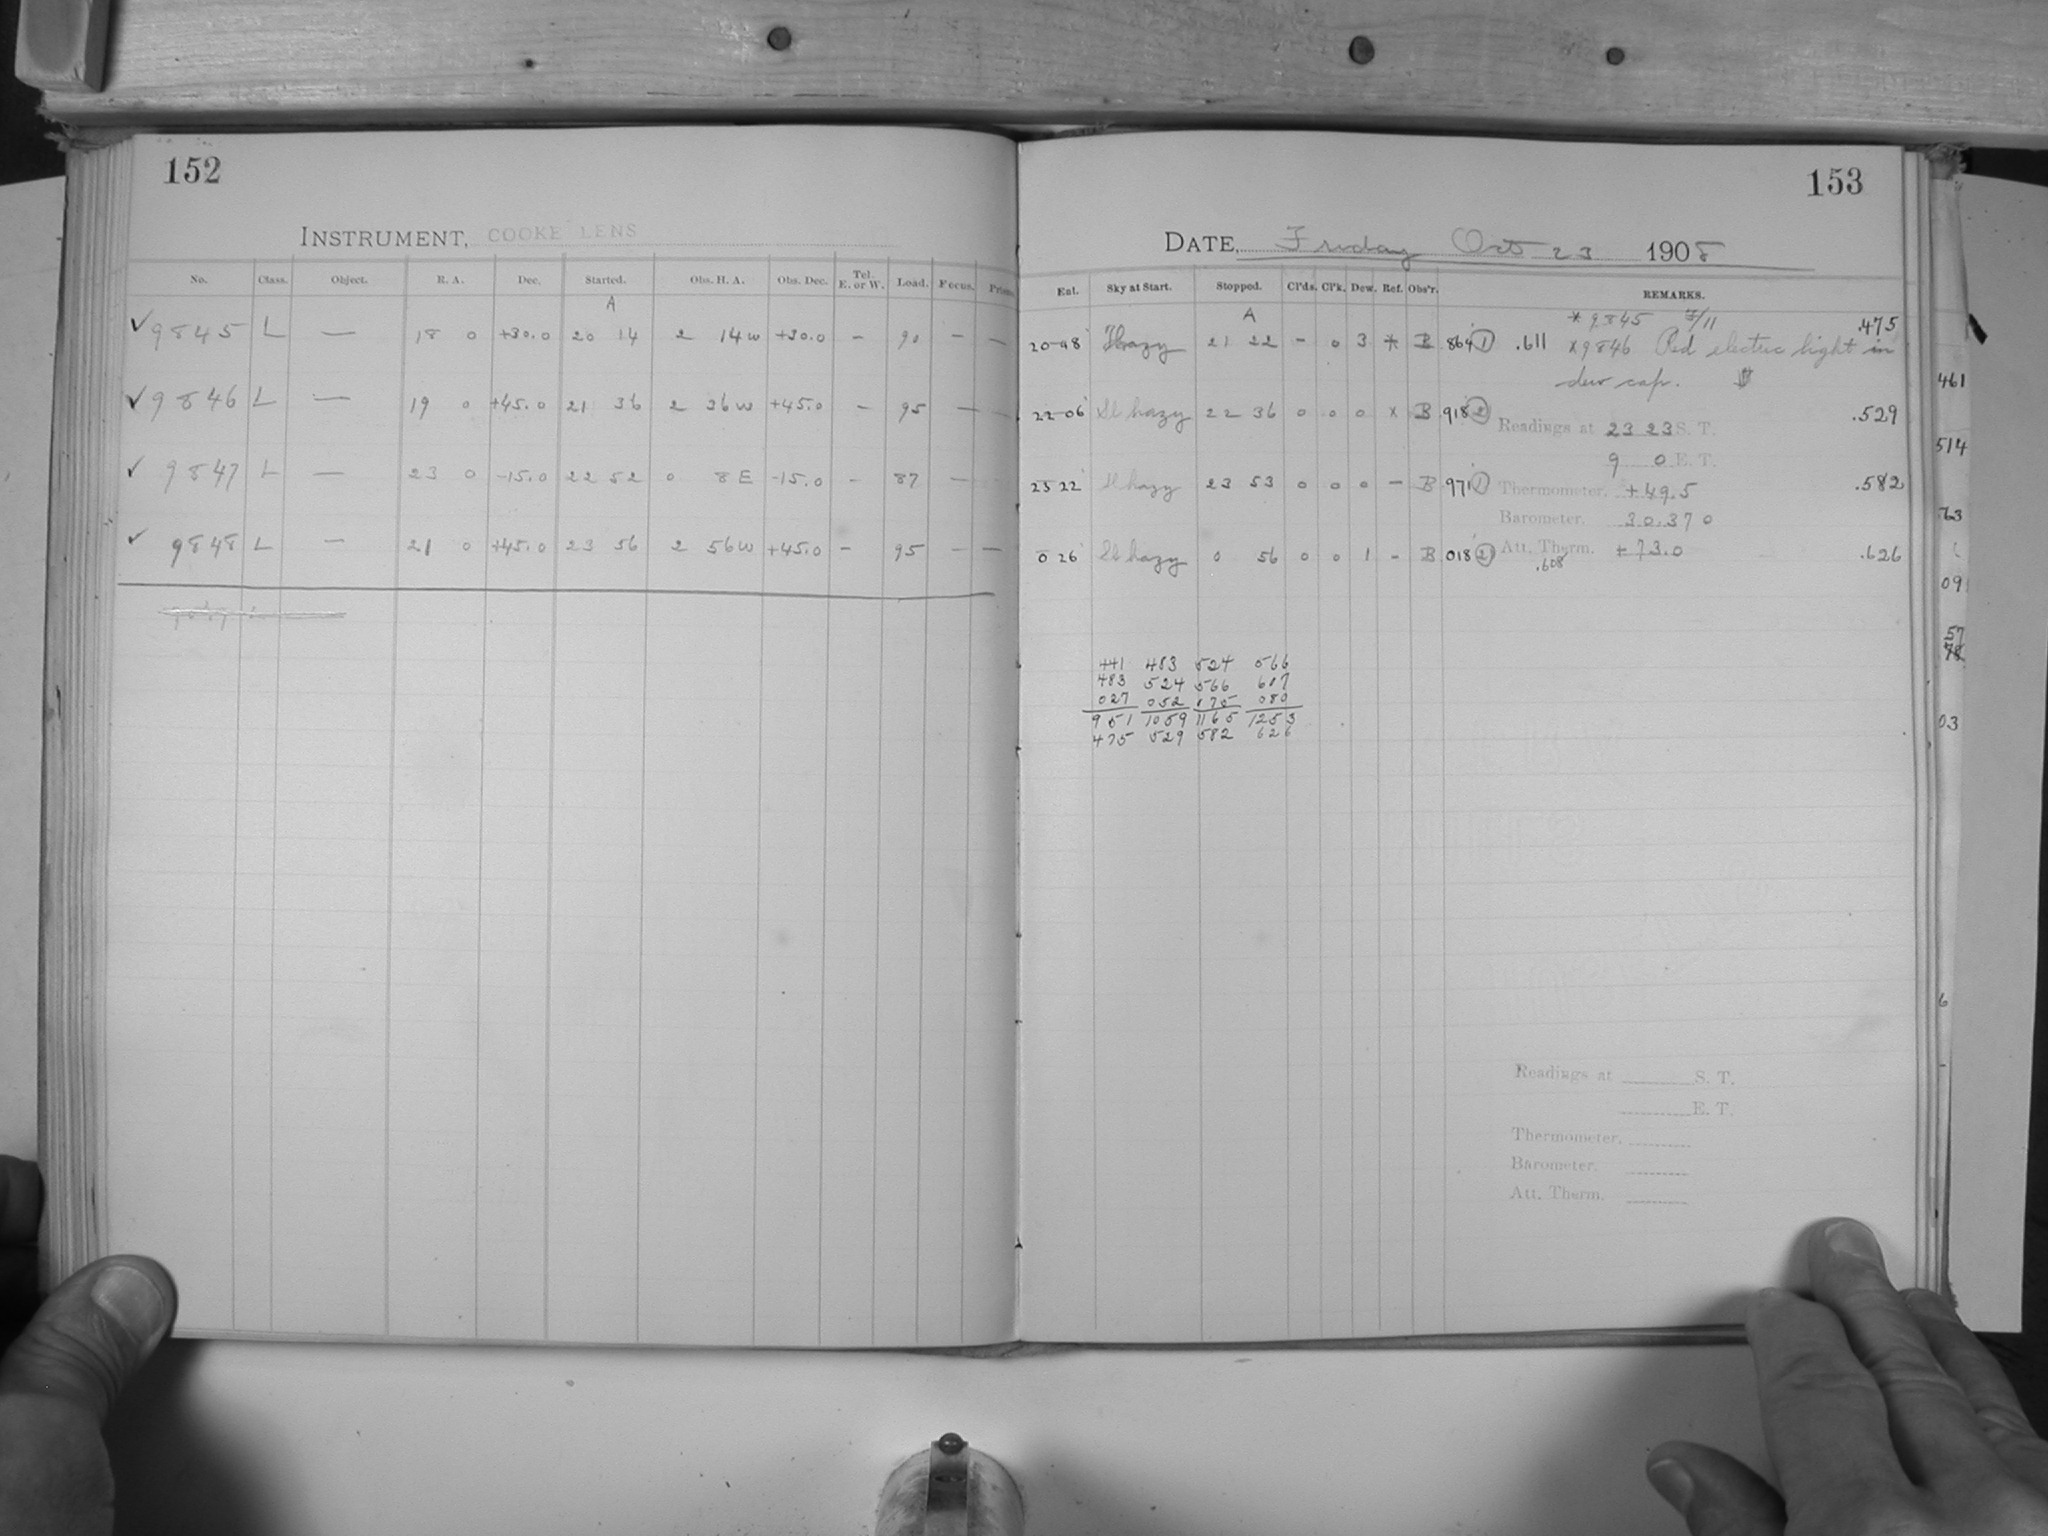 152
INSTRUMENT, COOKE LENS
No. Class. Object. R. A. Dec. Started. Obs. H. A. Obs. Dec. Tel. E. or W. Load. Focus. Prism.
A
✓ 9845 L — 18 0 +30.0 20 14 2 14 W +30.0 - 90 - -
✓ 9846 L — 19 0 +45.0 21 36 2 36 W +45.0 - 95 - -
✓ 9847 L — 23 0 -15.0 22 52 0 8 E -15.0 - 87 - -
✓ 9848 L — 21 0 +45.0 23 56 2 56 W +45.0 - 95 - -
153
DATE, Friday Oct 23 1908
Ent. Sky at Start. Stopped. Cl'ds. Cl'k. Dew. Ref. Obs'r. REMARKS.
A
20 48 Hazy 21 22 - 0 3 * B 864 1 .611 * 9845 F/11 .475
x 9846 Red electric light in
dew cap.
22 06 Sl hazy 22 36 0 0 0 x B 918 2 .529
Readings at 23 23 S. T.
9 0 E. T.
23 22 Sl hazy 23 53 0 0 0 - B 971 1 .582
Thermometer. +49.5
Barometer. 30.370
0 26 Sl hazy 0 56 0 0 1 - B 018 2 .626
Att. Therm. +73.0
.608
441 483 524 566
483 524 566 607
027 052 075 080
951 1059 1165 1253
475 529 582 626
Readings at S. T.
E. T.
Thermometer.
Barometer.
Att. Therm.
461
514
63
09
57
78
03
6